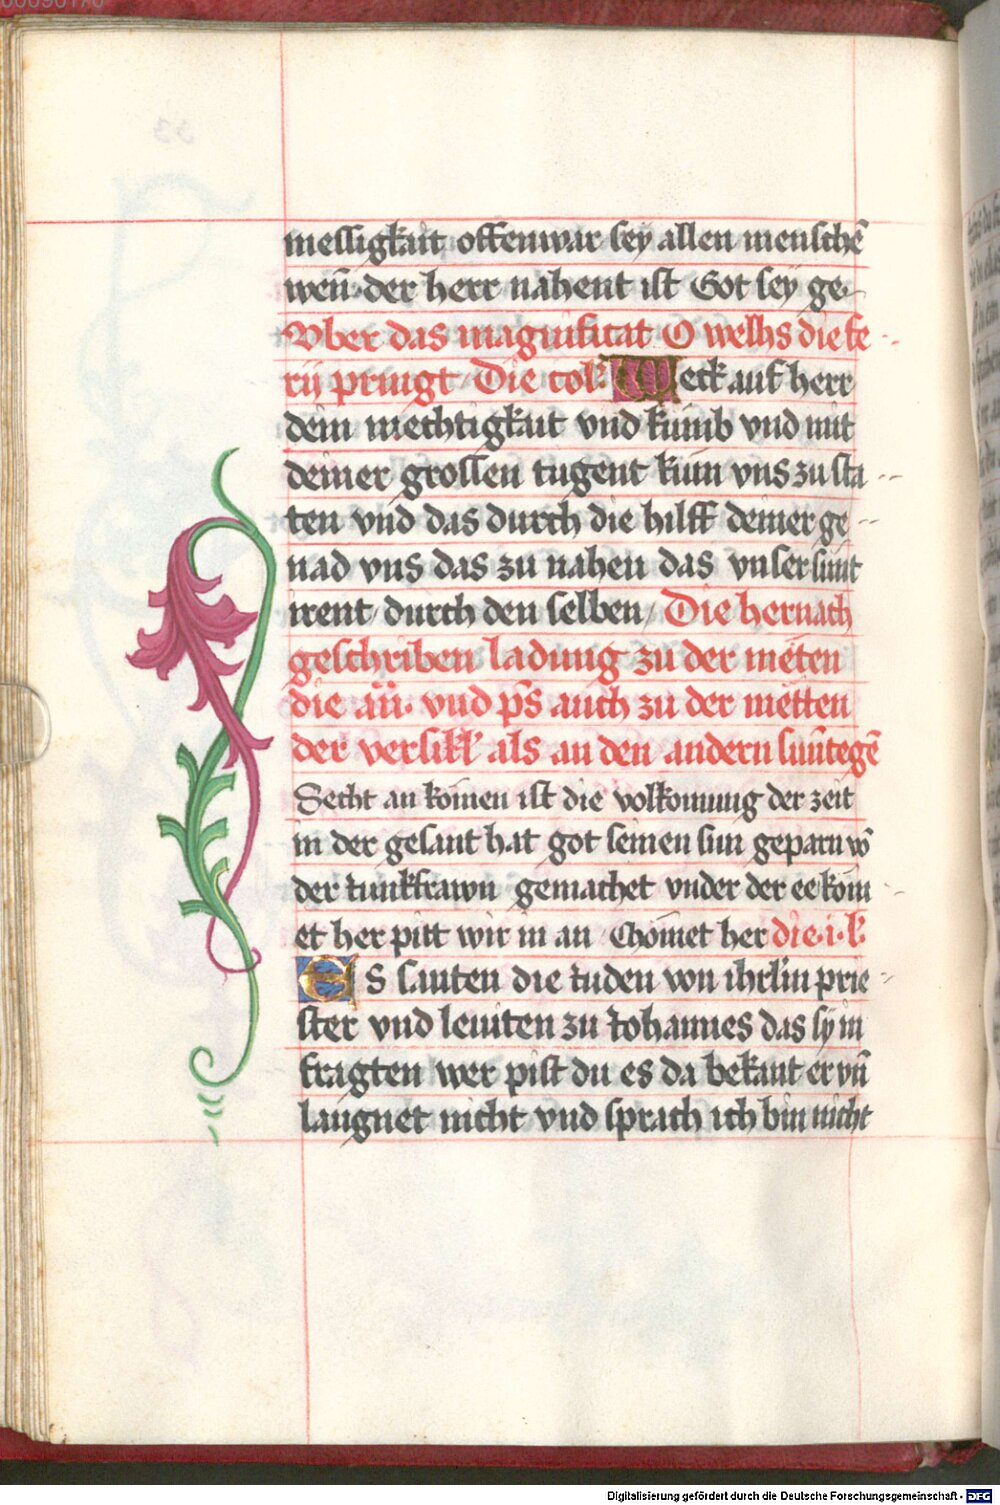 messigkait offenwar sey allen menschē
wen̄ der herr nahent ist Got sey ge-
Vber das magnificat O welhs die fe
rij pringt Die col̕ Weck auf herr
dein mechtigkait vnd kumb vnd mit
deiner grossen tugent kum vns zu sta
ten vnd das durch die hilff deiner ge
nad vns das zu nahen das vnser sunt
irent durch den selben Die hernach
geschriben ladung zu der meten
die an̄ vnd ps̄ auch zu der metten
der versikl̕ als an den andern sun̄tegē
Secht an komen ist die volkomung der zeit
in der gesant hat got seinen sun geparn vō
der iunkfrawn gemachet vnder der ee kom
et her pitt wir in an Chomet her die .i. l̕
ES santen die iuden von ihrl̄m prie
ster vnd leuiten zu iohannes das sy in
fragten wer pist du es da bekant er vn̄
laugnet nicht vnd sprach ich bin nicht
Digitalisierung gefördert durch die Deutsche Forschungsgemeinschaft - DFG